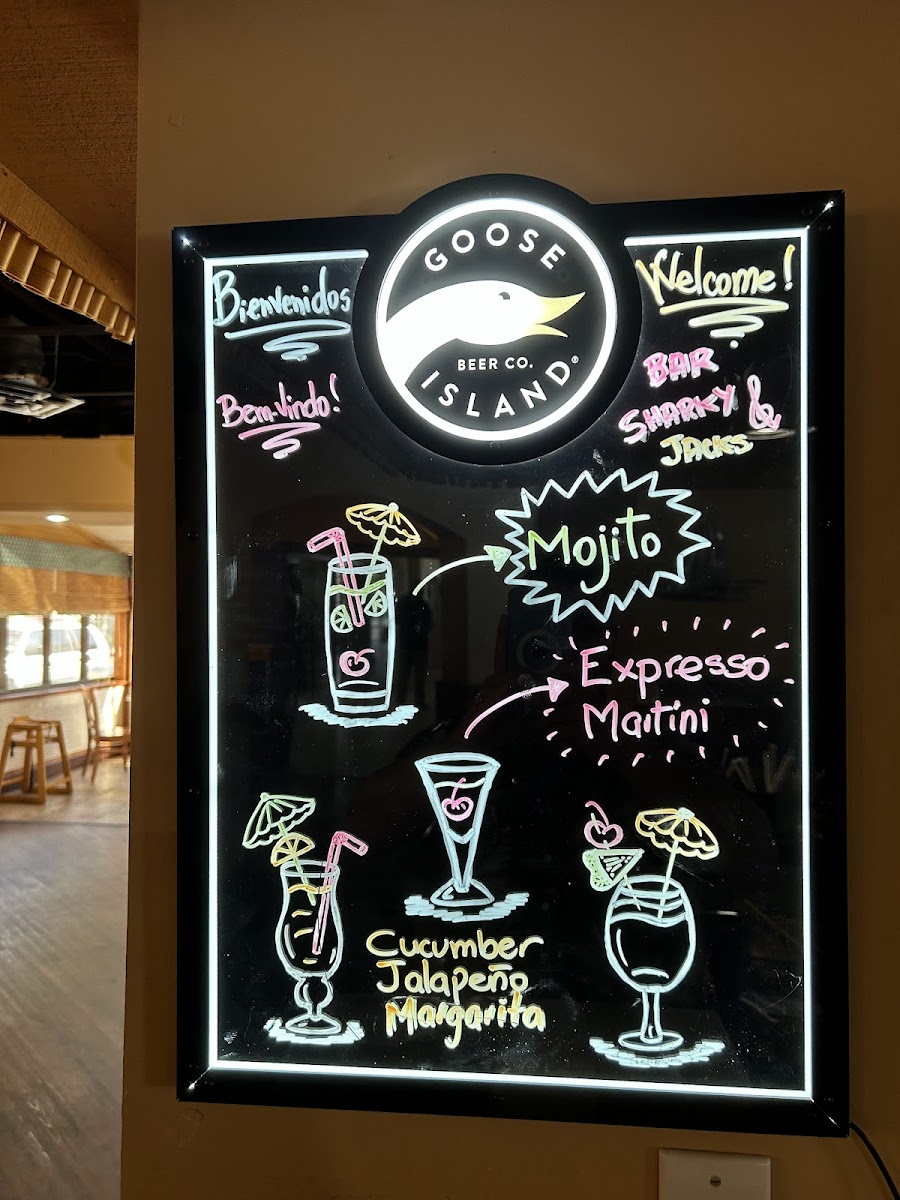 GOOSE
BEER CO.
ISLAND®
Bienvenidos
Bem-vindo!
Welcome!
BAR
SHARKY &
JACKS
Mojito
Expresso
Martini
Cucumber
Jalapeño
Margarita